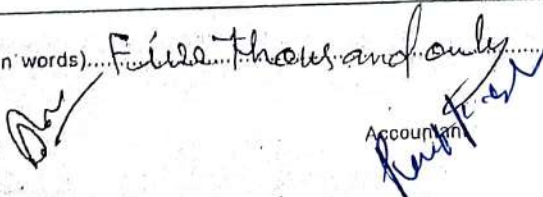 n words)....Five Thousand only......
Accountant